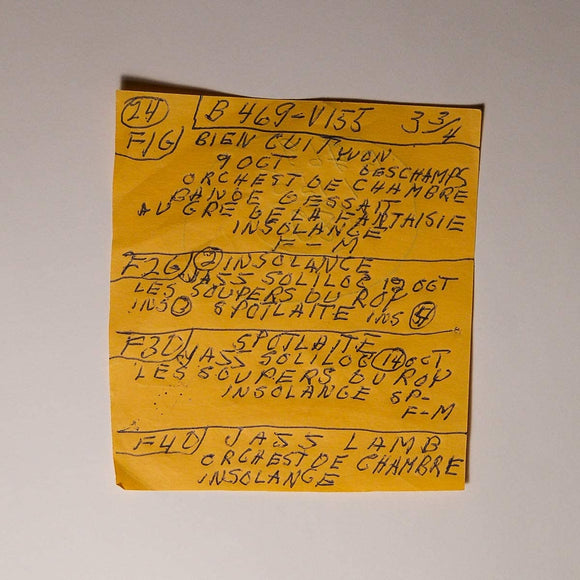 24 B 469-V155 3 3/4
F1G BIEN CUIT YVON
9 OCT DESCHAMPS
ORCHEST DE CHAMBRE
BANDE DESSAIT
AU GRE DE LA FANTAISIE
INSOLANGE
F-M
F2G 2 INSOLANCE
JASS SOLILOC 12 OCT
LES SOUPERS DU ROY
INS 3 SPOTLAITE INS
F3D SPOTLAITE
JASS SOLILOC 14 OCT
LES SOUPERS DU ROY
INSOLANGE SP-
F-M
F4D JASS LAMB
ORCHEST DE CHAMBRE
INSOLANGE